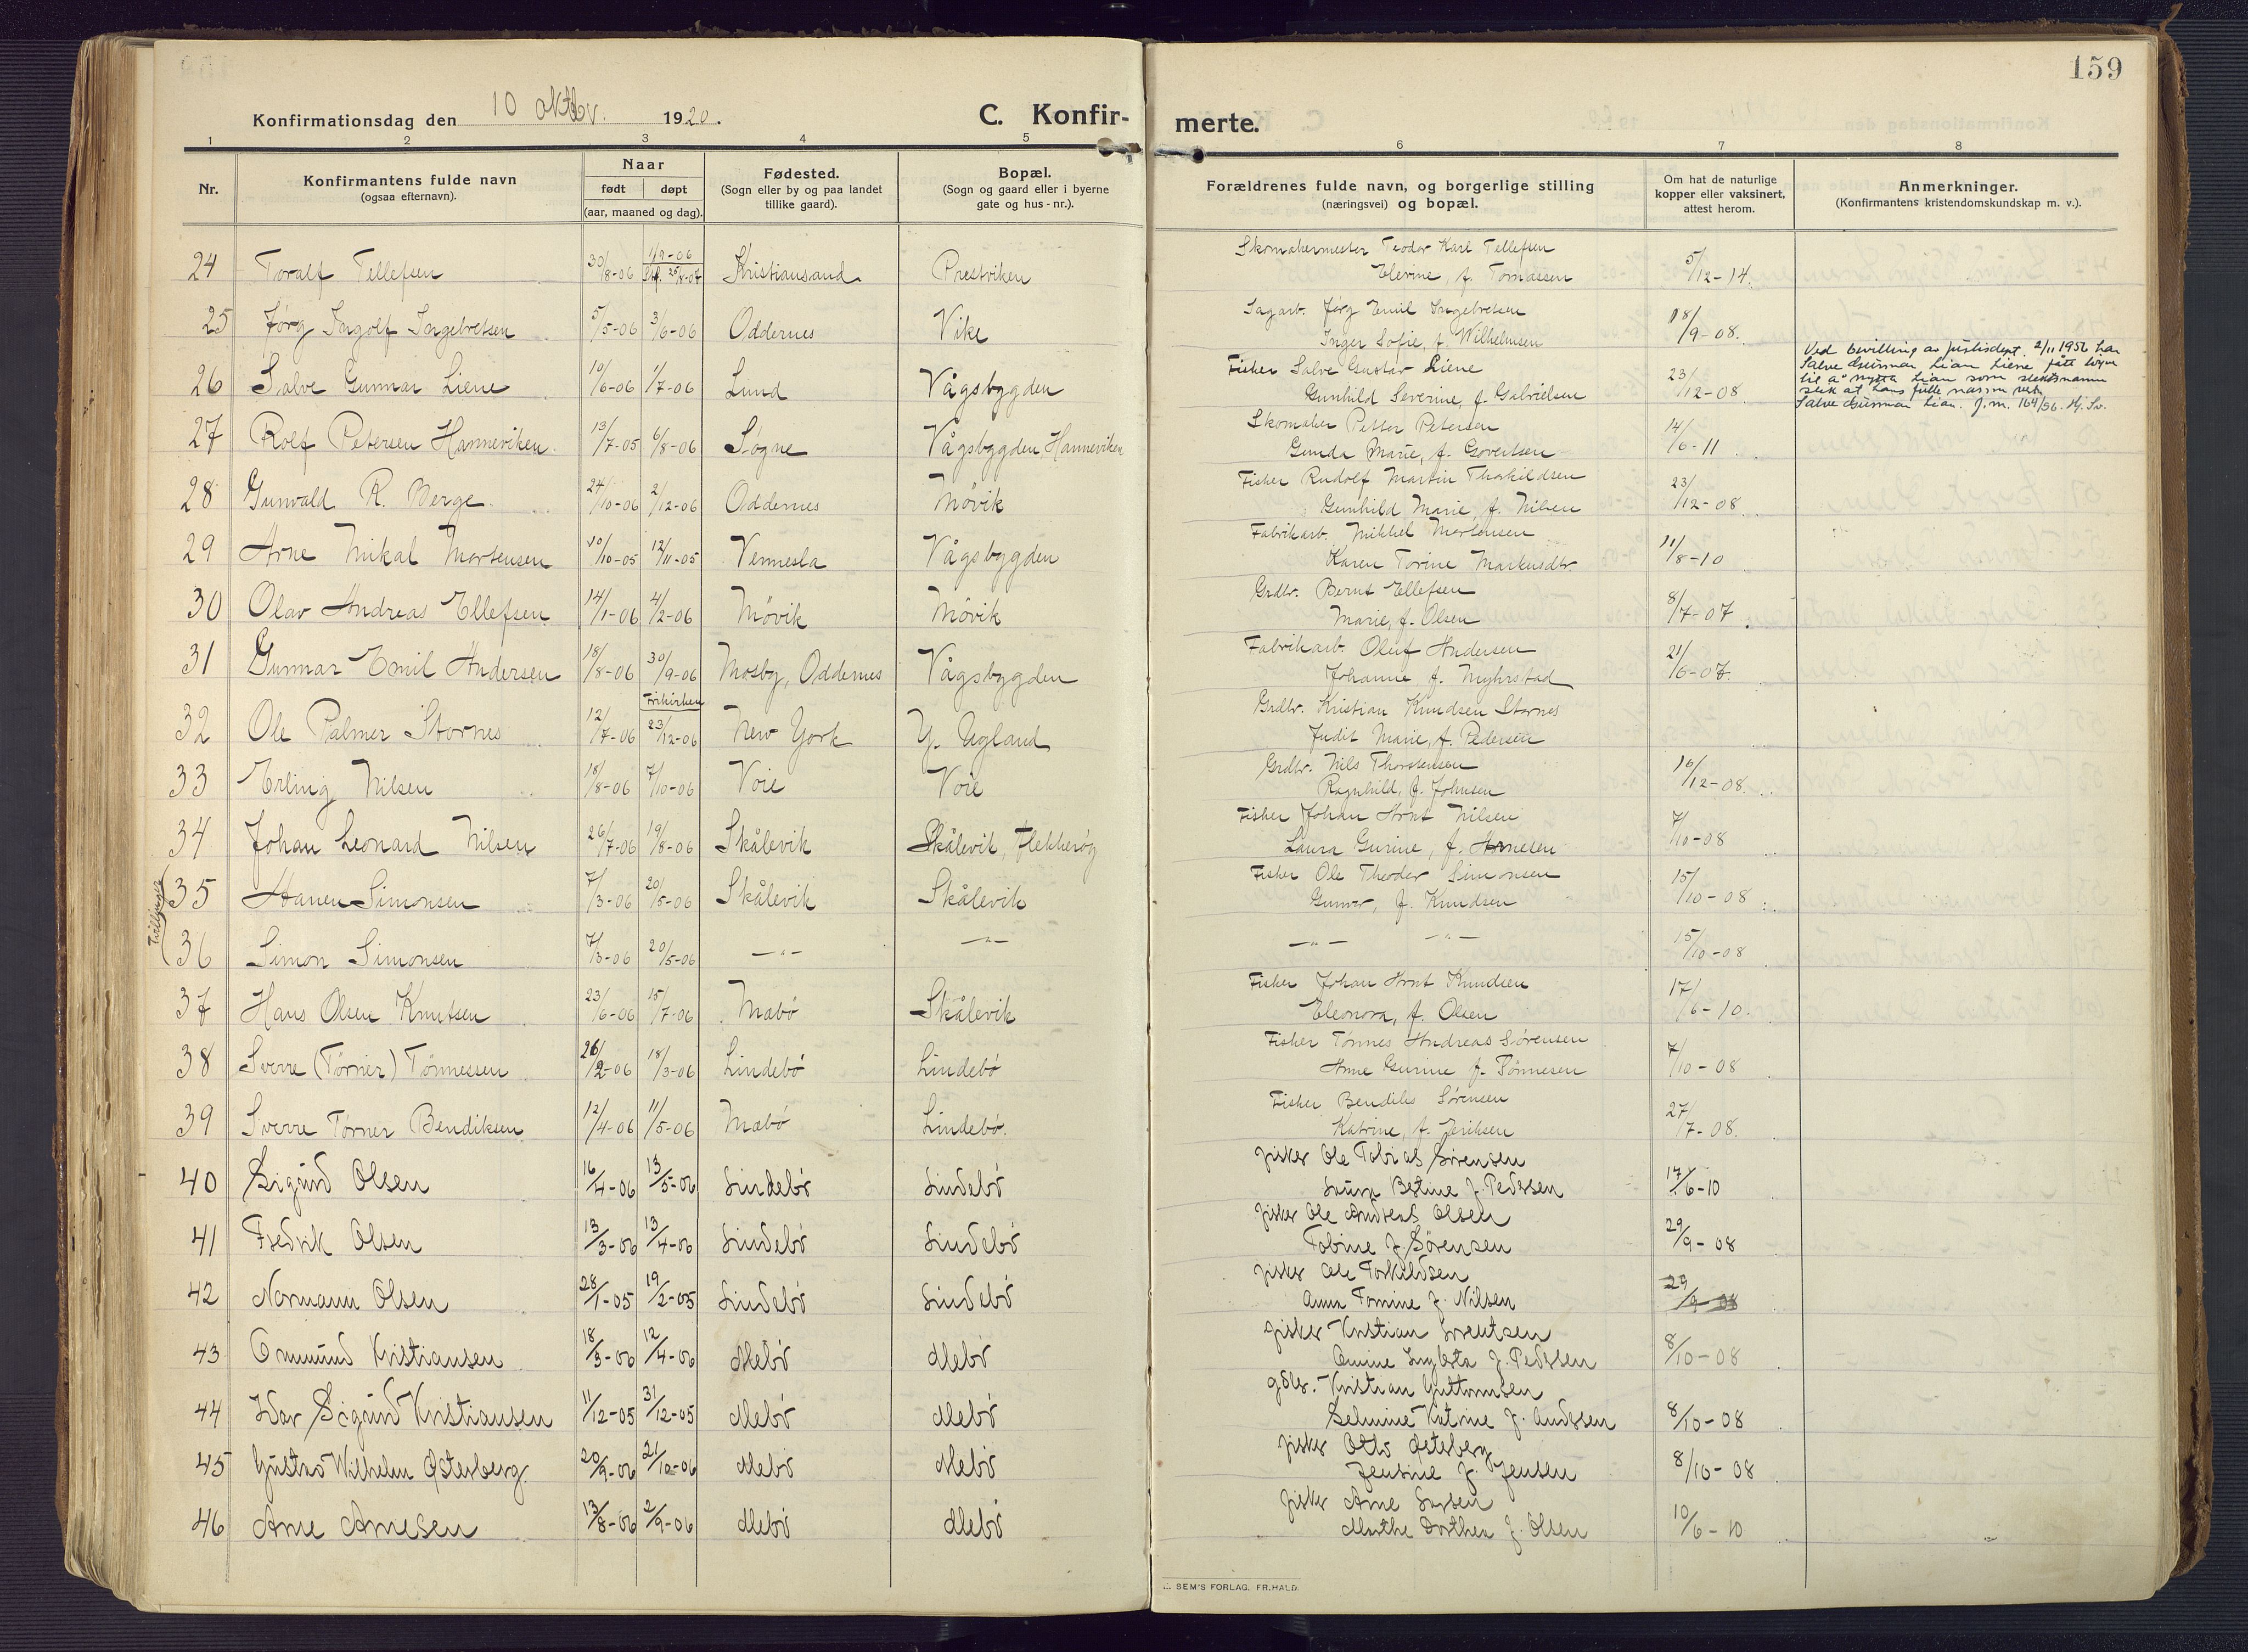 159
Konfirmationsdag den 10 oktbr. 1920.
C. Konfir-
merte.
1 2 3 4 5 6 7 8
Nr.
Konfirmantens fulde navn
(ogsaa efternavn).
Naar
født døpt
(aar, maaned og dag).
Fødested.
(Sogn eller by og paa landet
tillike gaard).
Bopæl.
(Sogn og gaard eller i byerne
gate og hus-nr.).
Forældrenes fulde navn, og borgerlige stilling
(næringsvei) og bopæl.
Om hat de naturlige
kopper eller vaksinert,
attest herom.
Anmerkninger.
(Konfirmantens kristendomskundskap m. v.).
24 Toralf Tellefsen 30/8-06 1/9-06 Stf. 25/8-07 Kristiansand Prestviken Skomakermester Teodor Karl Tellefsen 5/12-14.
Elevine, f. Tomassen
25 Jørg Ingolf Ingebretsen 5/5-06 3/6-06 Oddernes Vike Sagarb. Jørg Emil Ingebretsen 18/9-08.
Inger Sofie, f. Wilhelmsen
26 Salve Gunnar Liene 10/6-06 1/7-06 Lund Vågsbygden Fisker Salve Gustav Liene 23/12-08
Gunhild Severine, f. Gabrielsen
Ved bevilling av justisdept. 2/11 1956 har
Salve Gunnar Lian Liene fått løyve
til å nytta Lian som slektsnamn
slik at hans fulle namn vert
Salve Gunnar Lian. J.nr. 164/56. Hj. Sv.
27 Rolf Petersen Hanneviken. 13/7-05 6/8-06 Søgne Vågsbygden, Hanneviken Skomaker Petter Petersen 14/6-11
Gunda Marie, f. Govertsen
28 Gunvald R. Berge. 24/10-06 2/12-06 Oddernes Møvik Fisker Rudolf Martin Thorkildsen 23/12-08.
Gunhild Marie, f. Nilsen
29 Arne Mikal Mortensen 10/10-05 12/11-05 Vennesla Vågsbygden Fabrikarb. Mikkel Mortensen 11/8-10
Karen Torine Markusdtr.
30 Olav Andreas Ellefsen 14/1-06 4/2-06 Møvik Møvik Grdbr. Bernt Ellefsen 8/7-07
Marie, f. Olsen
31 Gunnar Emil Andersen 18/8-06 30/9-06 Mosby, Oddernes Vågsbygden Fabrikarb. Oluf Andersen 21/6-07.
Johanne, f. Myhrstad
32 Ole Palmer Stornes 12/7-06 Frikirken 23/12-06 New York Y. Ugland Grdbr. Kristian Knudsen Stornes
Judit Marie, f. Pedersen
33 Erling Nilsen 18/8-06 7/10-06 Voie Voie Grdbr. Nils Thorstensen 16/12-08.
Ragnhild, f. Johnsen
34 Johan Leonard Nilsen 26/7-06 19/8-06 Skålevik Skålevik, Flekkerøy Fisker Johan Arnt Nilsen 7/10-08
Laura Gurine, f. Arnesen
Tvillinger
35 Hanen Simonsen 7/3-06 20/5-06 Skålevik Skålevik Fisker Ole Theodor Simonsen 15/10-08
Gunvor, f. Knudsen
36 Simon Simonsen 7/3-06 20/5-06 —"— —"— —"— —"— 15/10-08
37 Hans Olsen Knutsen 23/6-06 15/7-06 Mæbø Skålevik Fisker Johan Arnt Knudsen 17/6-10.
Eleonora, f. Olsen
38 Sverre (Tørner) Tønnessen 26/2-06 18/3-06 Lindebø Lindebø Fisker Tønnes Andreas Sørensen 7/10-08
Anne Gurine f. Tønnesen
39 Sverre Tørner Bendiksen 12/4-06 11/5-06 Mæbø Lindebø. Fisker Bendiks Sørensen 27/7-08.
Katrine, f. Eriksen
40 Sigurd Olsen 16/4-06 13/5-06 Lindebø Lindebø fisker Ole Tobias Sørensen 17/6-10
Laura Betine f. Pedersen
41 Fredrik Olsen 13/3-06 13/4-06 Lindebø Lindebø fisker Ole Andreas Olsen 29/9-08
Tobine f. Sørensen
42 Normann Olsen 28/1-05 19/2-05 Lindebø Lindebø fisker Ole Torkildsen 29/9-08
Anna Tomine f. Nilsen
43 Ommund Kristiansen 18/3-06 12/4-06 Mebø Mebø fisker Kristian Lorentsen 8/10-08
Amine Ingberta f. Pedersen
44 Idar Sigurd Kristiansen 11/12-05 31/12-05 Mebø Mebø gdbr. Kristian Guttormsen 8/10-08
Selmine Katrine f. Andersen
45 Gustav Wilhelm Østerberg 20/9-06 21/10-06 Mebø Mebø fisker Otto Østerberg 8/10-08
Jensine f. Jensen
46 Arne Arnesen 13/8-06 2/9-06 Mebø Mebø fisker Arne Larsen 10/6-10
Marthe Dorthea f. Olsen
SEM'S FORLAG. FR.HALD.